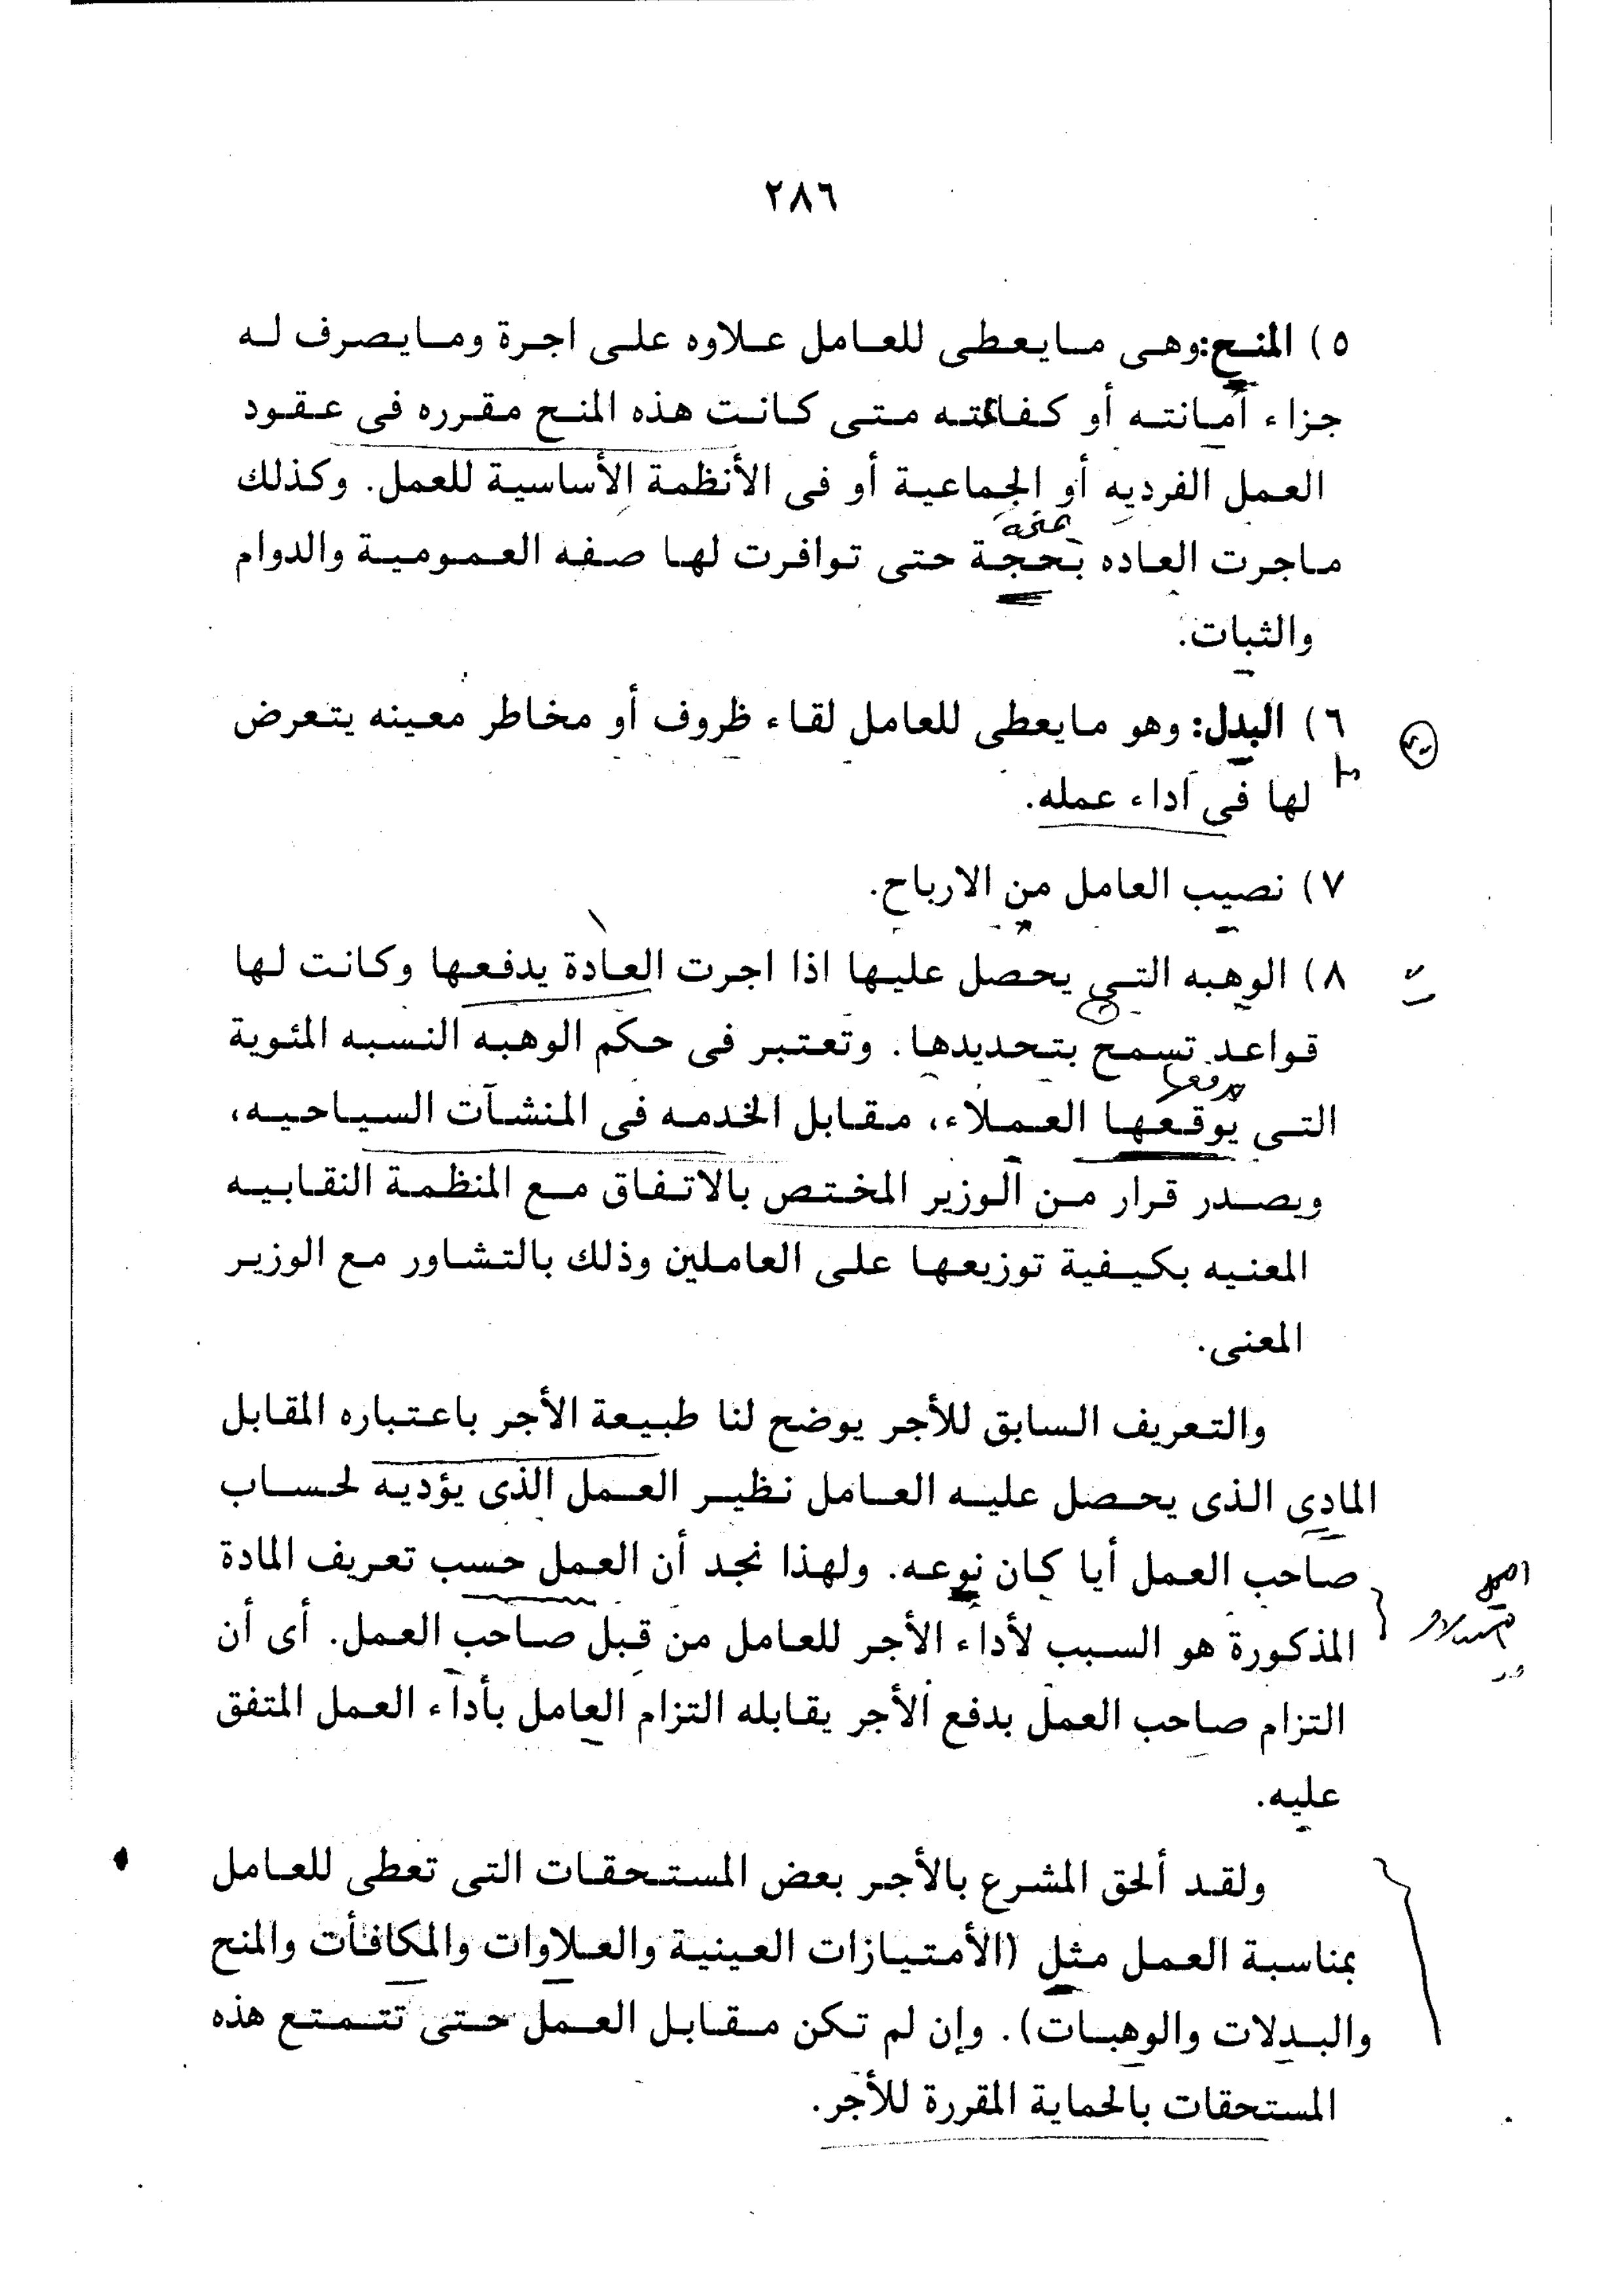 ٢٨٦
٥) المنح: وهى مايعطى للعامل علاوه على اجرة ومايصرف له
جزاء أمانته أو كفاءته متى كانت هذه المنح مقرره فى عقود
العمل الفرديه أو الجماعية أو فى الأنظمة الأساسية للعمل. وكذلك
ماجرت العاده بحجة حتى توافرت لها صفه العمومية والدوام
والثبات.
٦) البدل: وهو مايعطى للعامل لقاء ظروف أو مخاطر معينه يتعرض
لها فى أداء عمله.
٧) نصيب العامل من الارباح.
٨) الوهبه التى يحصل عليها اذا اجرت العادة يدفعها وكانت لها
قواعد تسمح بتحديدها. وتعتبر فى حكم الوهبه النسبه المئوية
يدفعها
التى يوقعها العملاء، مقابل الخدمه فى المنشآت السياحيه،
ويصدر قرار من الوزير المختص بالاتفاق مع المنظمة النقابيه
المعنيه بكيفية توزيعها على العاملين وذلك بالتشاور مع الوزير
المعنى.
والتعريف السابق للأجر يوضح لنا طبيعة الأجر باعتباره المقابل
المادى الذى يحصل عليه العامل نظير العمل الذى يؤديه لحساب
صاحب العمل أيا كان نوعه. ولهذا نجد أن العمل حسب تعريف المادة
المذكورة هو السبب لأداء الأجر للعامل من قبل صاحب العمل. أى أن
التزام صاحب العمل بدفع الأجر يقابله التزام العامل بأداء العمل المتفق
عليه.
ولقد ألحق المشرع بالأجر بعض المستحقات التى تعطى للعامل
بمناسبة العمل مثل (الأمتيازات العينية والعلاوات والمكافأت والمنح
والبدلات والوهبات). وإن لم تكن مقابل العمل حتى تتمتع هذه
المستحقات بالحماية المقررة للأجر.